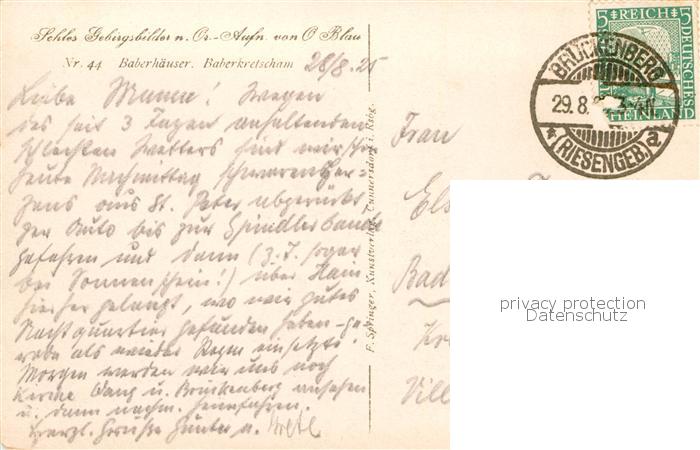 Schles Gebirgsbilder n. Or.-Aufn. von O Blau
Nr. 44 Baberhäuser. Baberkretscham
28/8. 25
Liebe Mama! Wegen
des seit 3 Tagen anhaltenden
schlechten Wetters sind wir
heute Nachmittag schweren Her=
zens aus St. Peter abgerückt,
per Auto bis zur Spindlerbaude
gefahren und dann (z. T. sogar
bei Sonnenschein!) über
hierher gelangt, wo wir gutes
Nachtquartier gefunden haben - ge=
rade als wieder Regen einsetzte.
Morgen werden wir uns noch
Kirche Wang u. Brückenberg ansehen
u. dann nachm. heimfahren.
Herzl. Grüße Günter u. Grete
F. Springer, Kunstverlag, Cunnersdorf i. Rsbg.
Frau
Els
Bad
Kr
Vill
5 REICH 5
DEUTSCHES
RHEINLAND
BRÜCKENBERG
29.8.
* (RIESENGEB.) a
privacy protection
Datenschutz